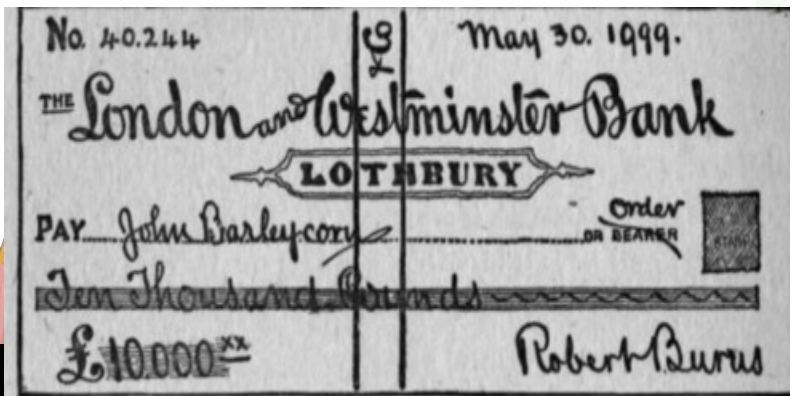 No. 40.244 & Co May 30. 1999.
THE London and Westminster Bank
LOTHBURY
order
PAY John Barleycorn OR BEARER
STAMP
Ten Thousand Pounds
£10.000 xx Robert Burns